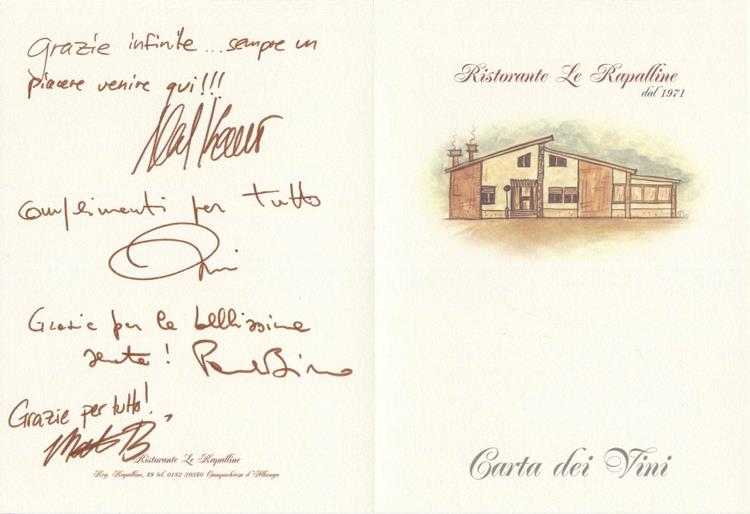 Grazie infinite...sempre un
piacere venire qui!!!
complimenti per tutto
Grazie per la bellissima
serata!
Grazie per tutto!
Ristorante Le Rapalline
Reg. Rapalline, 49 tel. 0182 20380 Campochiesa d'Albenga
Ristorante Le Rapalline
dal 1971
Carta dei Vini